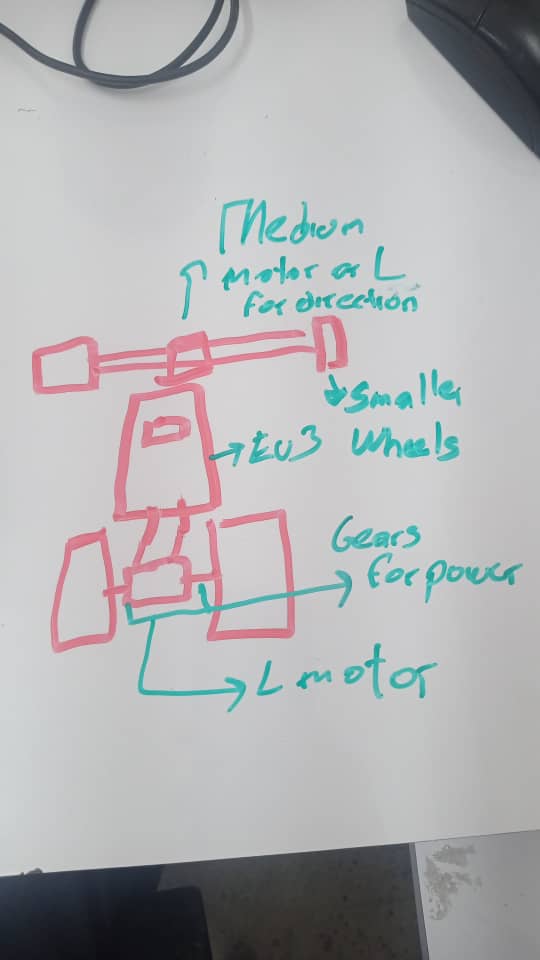 Medium
motor or L
for direction
Smaller
Wheels
EV3
Gears
for power
L motor